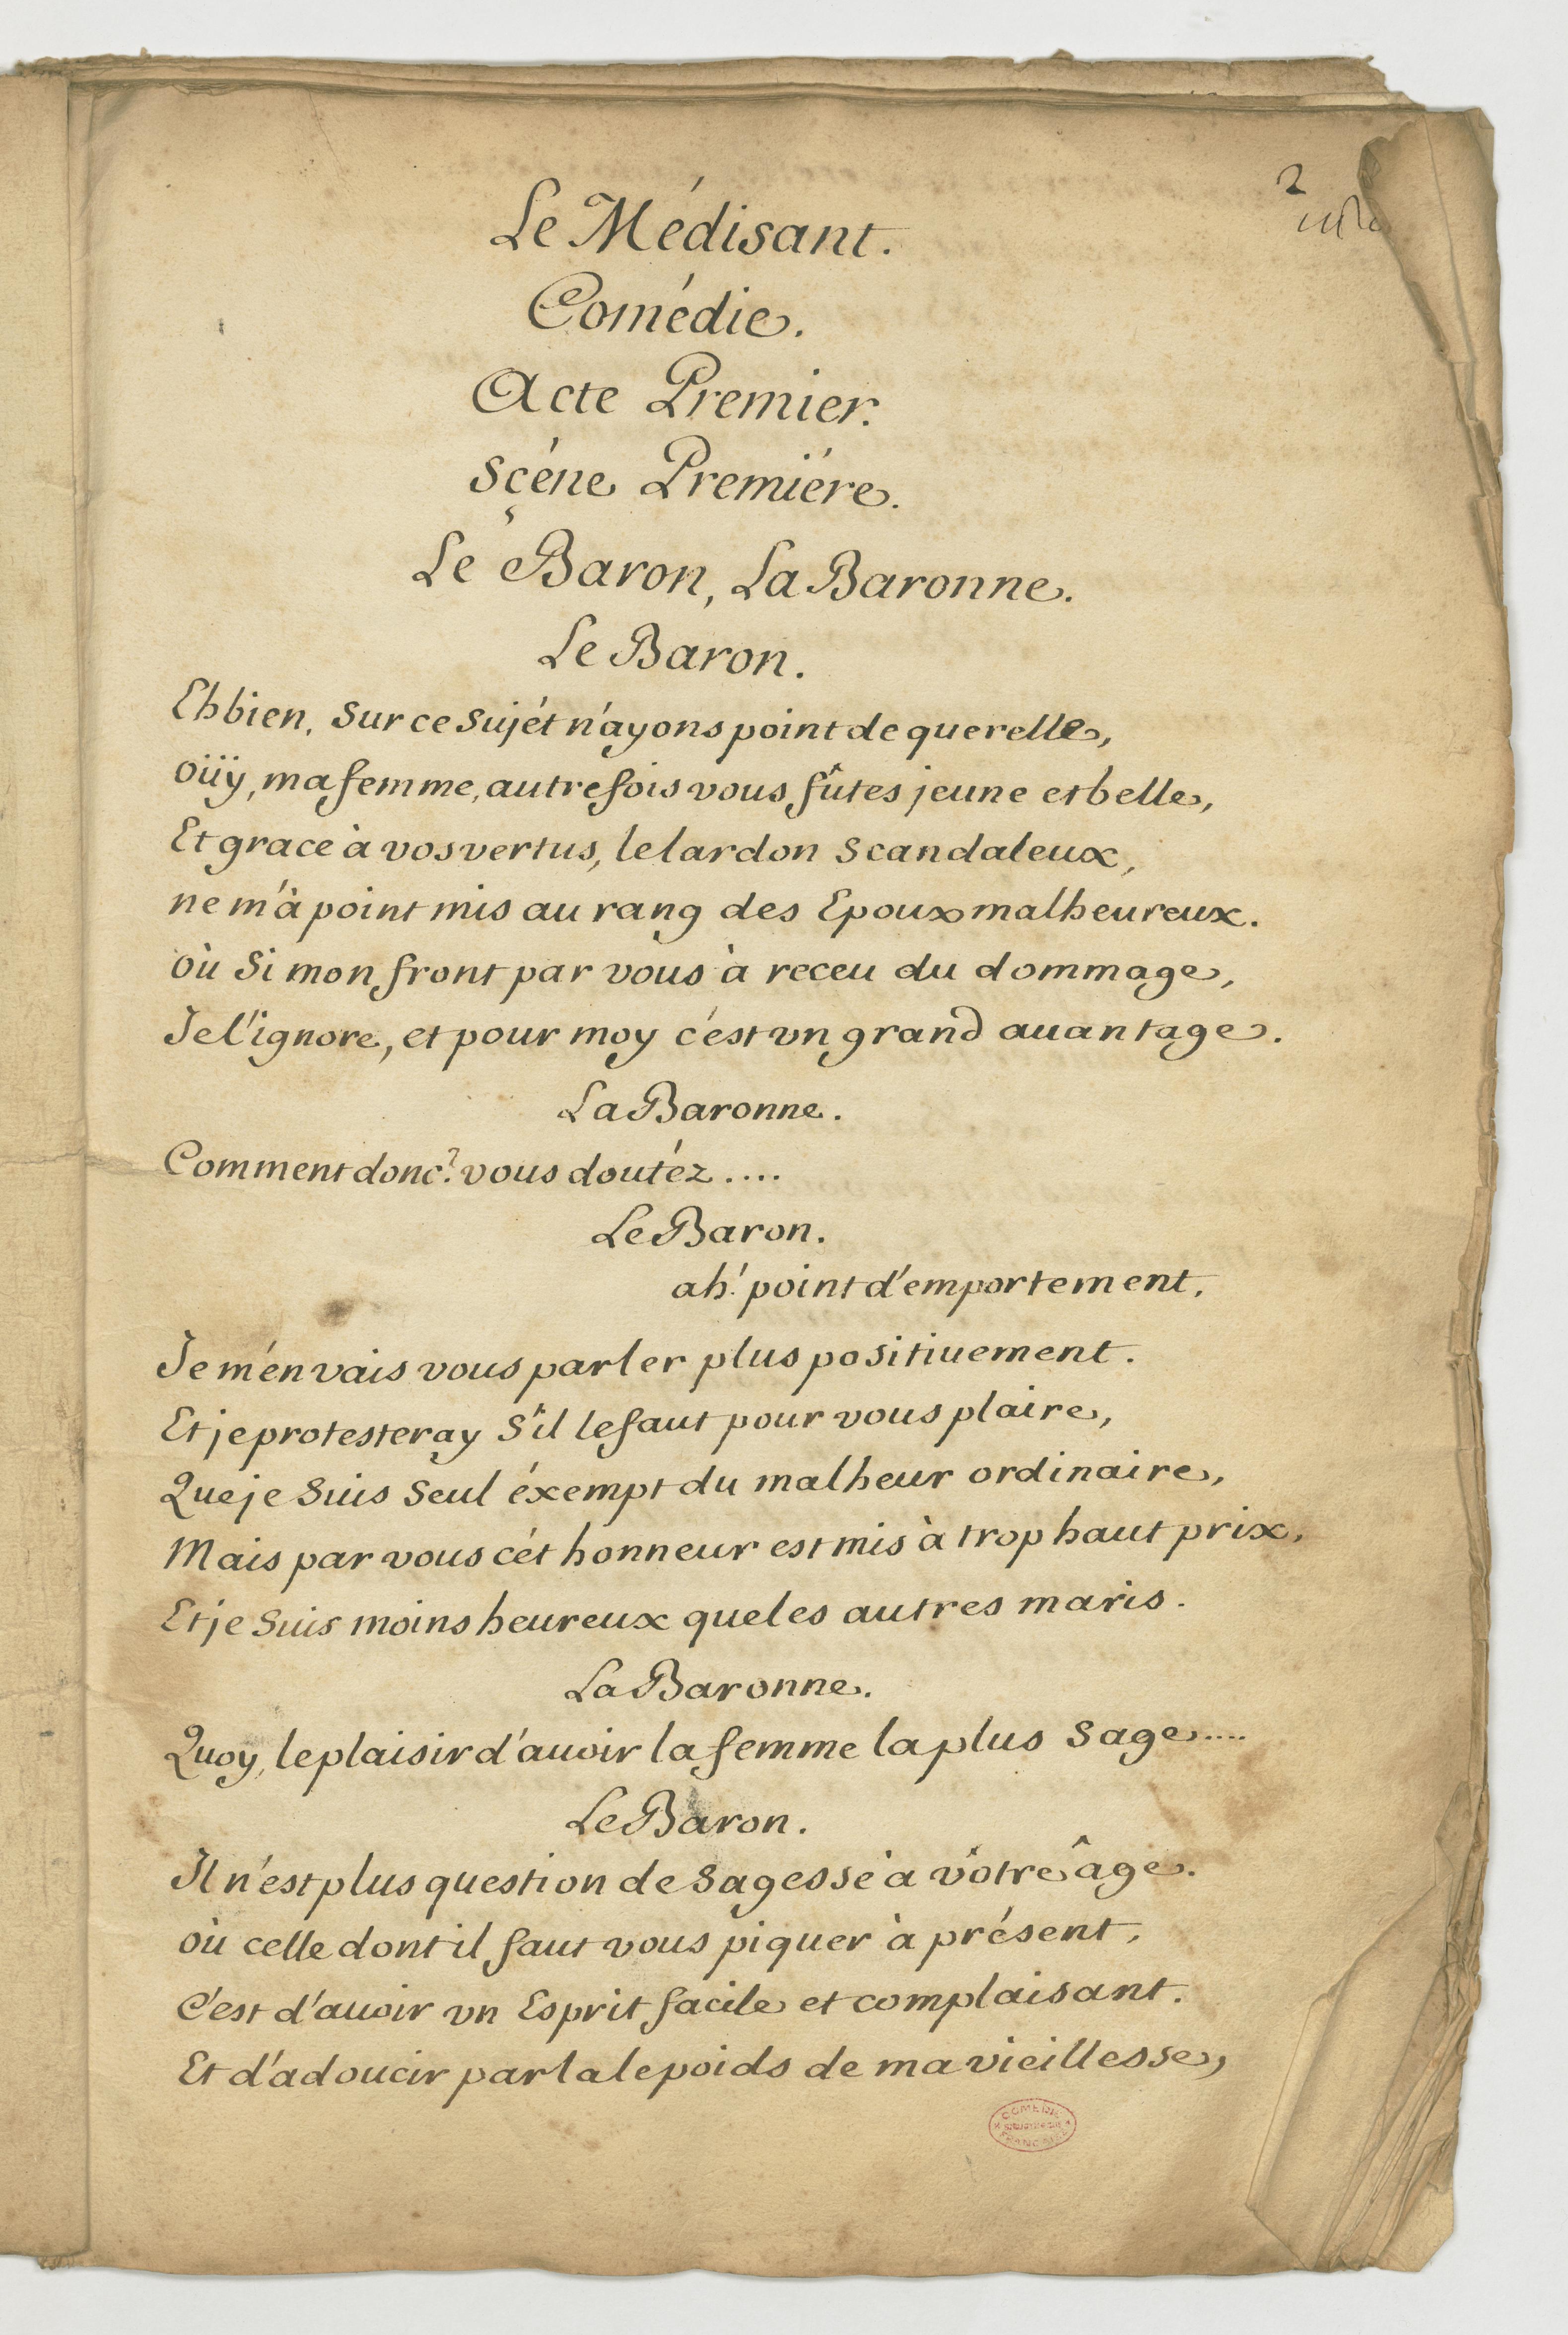 2
Le Médisant.
Comédie.
Acte Premier.
Sçéne Premiére.
Le Baron, La Baronne.
Le Baron.
Eh bien, Sur ce Sujét n'ayons point de querelle,
oüy, ma femme, autrefois vous fûtes jeune et belle,
Et grace à vos vertus, le lardon Scandaleux,
ne m'à point mis au rang des Epoux malheureux.
où Si mon front par vous à receu du dommage,
Je l'ignore, et pour moy c'est vn grand auantage.
La Baronne.
Comment donc? vous doutéz....
Le Baron.
ah! point d'emportement,
Je m'én vais vous parler plus positiuement.
Et je protesteray S'il le faut pour vous plaire,
Que je Suis Seul éxempt du malheur ordinaire,
Mais par vous cét honneur est mis à trop haut prix,
Et je Suis moins heureux que les autres maris.
La Baronne.
Quoy, le plaisir d'auoir la femme la plus Sage....
Le Baron.
Il n'est plus question de Sagesse à vôtre âge.
où celle dont il faut vous piquer à présent,
C'est d'auoir vn Esprit facile et complaisant.
Et d'adoucir par la le poids de ma vieillesse,
COMEDIE
FRANCAISE